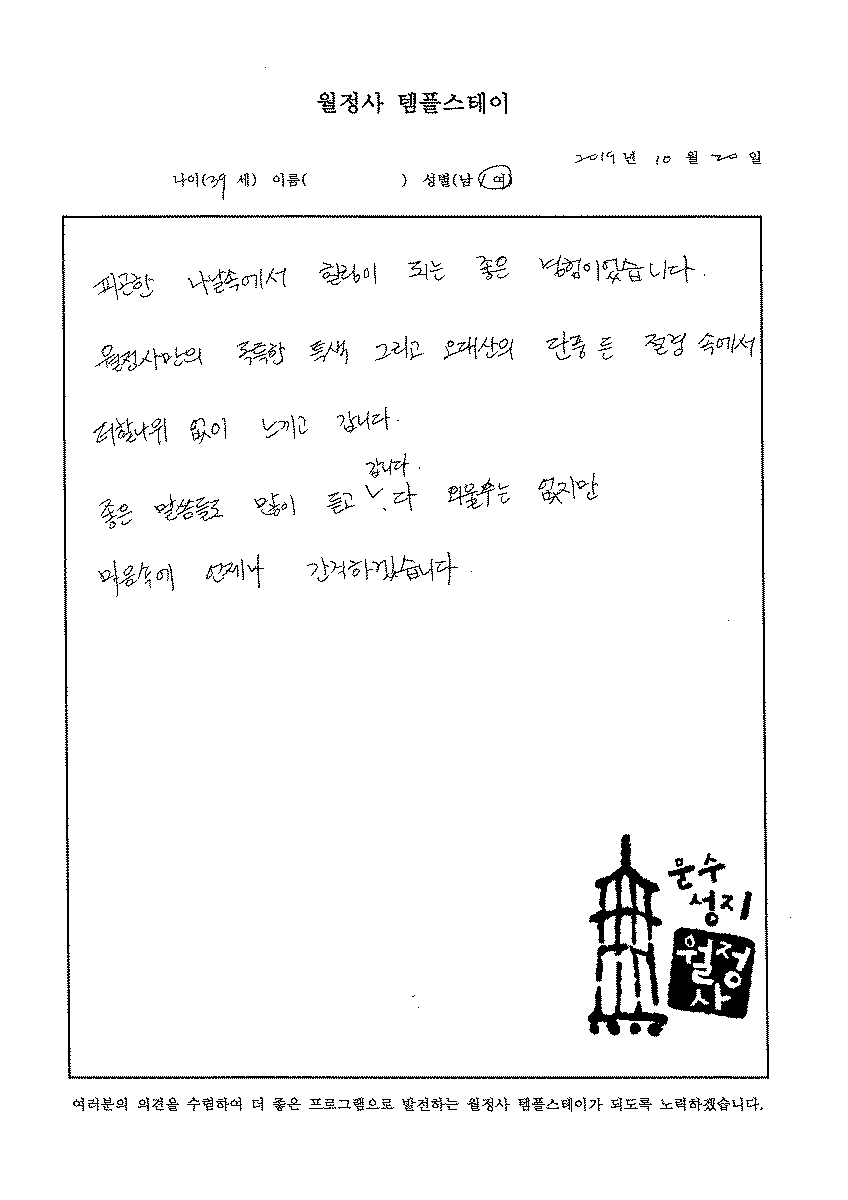 월정사 템플스테이
2019년 10월 20일
나이(39 세) 이름( ) 성별(남 / 여)
피곤한 나날속에서 힐링이 되는 좋은 경험이었습니다.
월정사만의 독특한 특색 그리고 오대산의 단풍 든 절경 속에서
더할나위 없이 느끼고 갑니다.
갑니다.
좋은 말씀들도 많이 듣고 다 외울수는 없지만
마음속에 언제나 간직하겠습니다.
문수
성지
월정
사
여러분의 의견을 수렴하여 더 좋은 프로그램으로 발전하는 월정사 템플스테이가 되도록 노력하겠습니다.